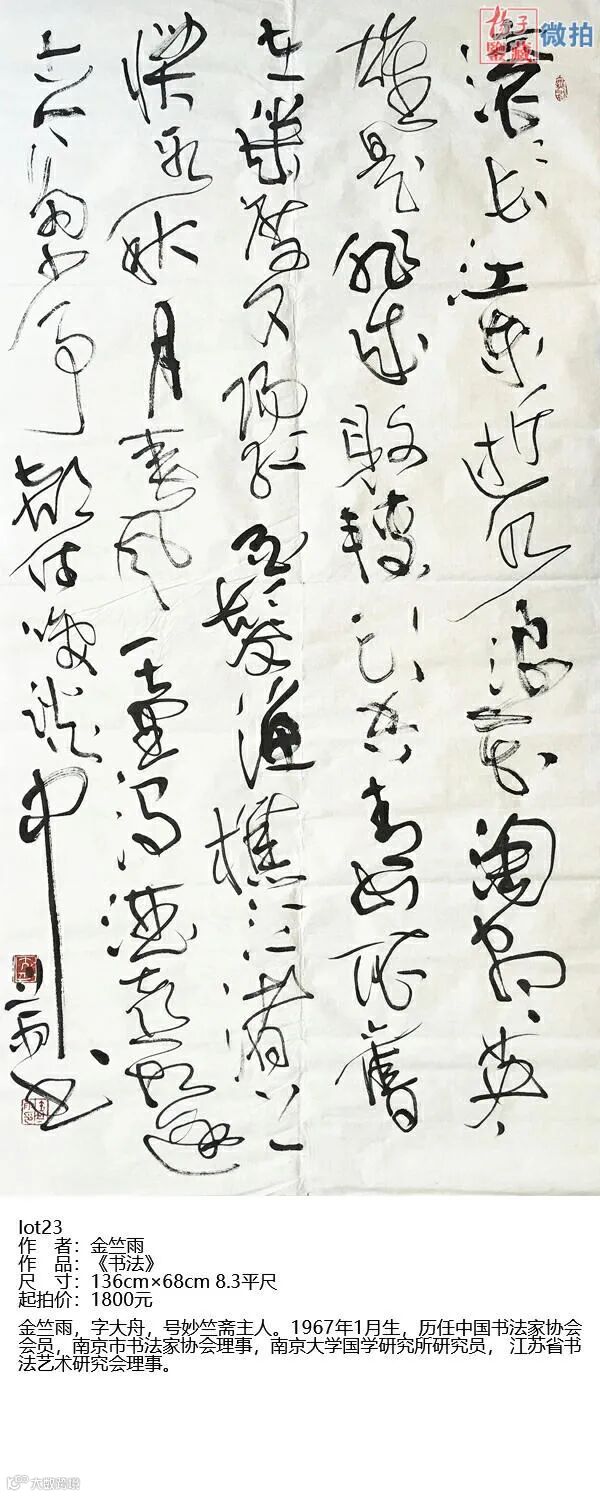 揚子鑒藏
微拍
滾滾长江東逝水浪花淘盡英
雄是非成敗轉頭空青山依舊
在幾度夕陽紅白髮漁樵江渚上
慣看秋月春風一壶濁酒喜相逢
古今多少事都付笑談中
lot23
作 者：金竺雨
作 品：《书法》
尺 寸：136cm×68cm 8.3平尺
起拍价：1800元
金竺雨，字大舟，号妙竺斋主人。1967年1月生，历任中国书法家协会
会员，南京市书法家协会理事，南京大学国学研究所研究员， 江苏省书
法艺术研究会理事。
大数跨境